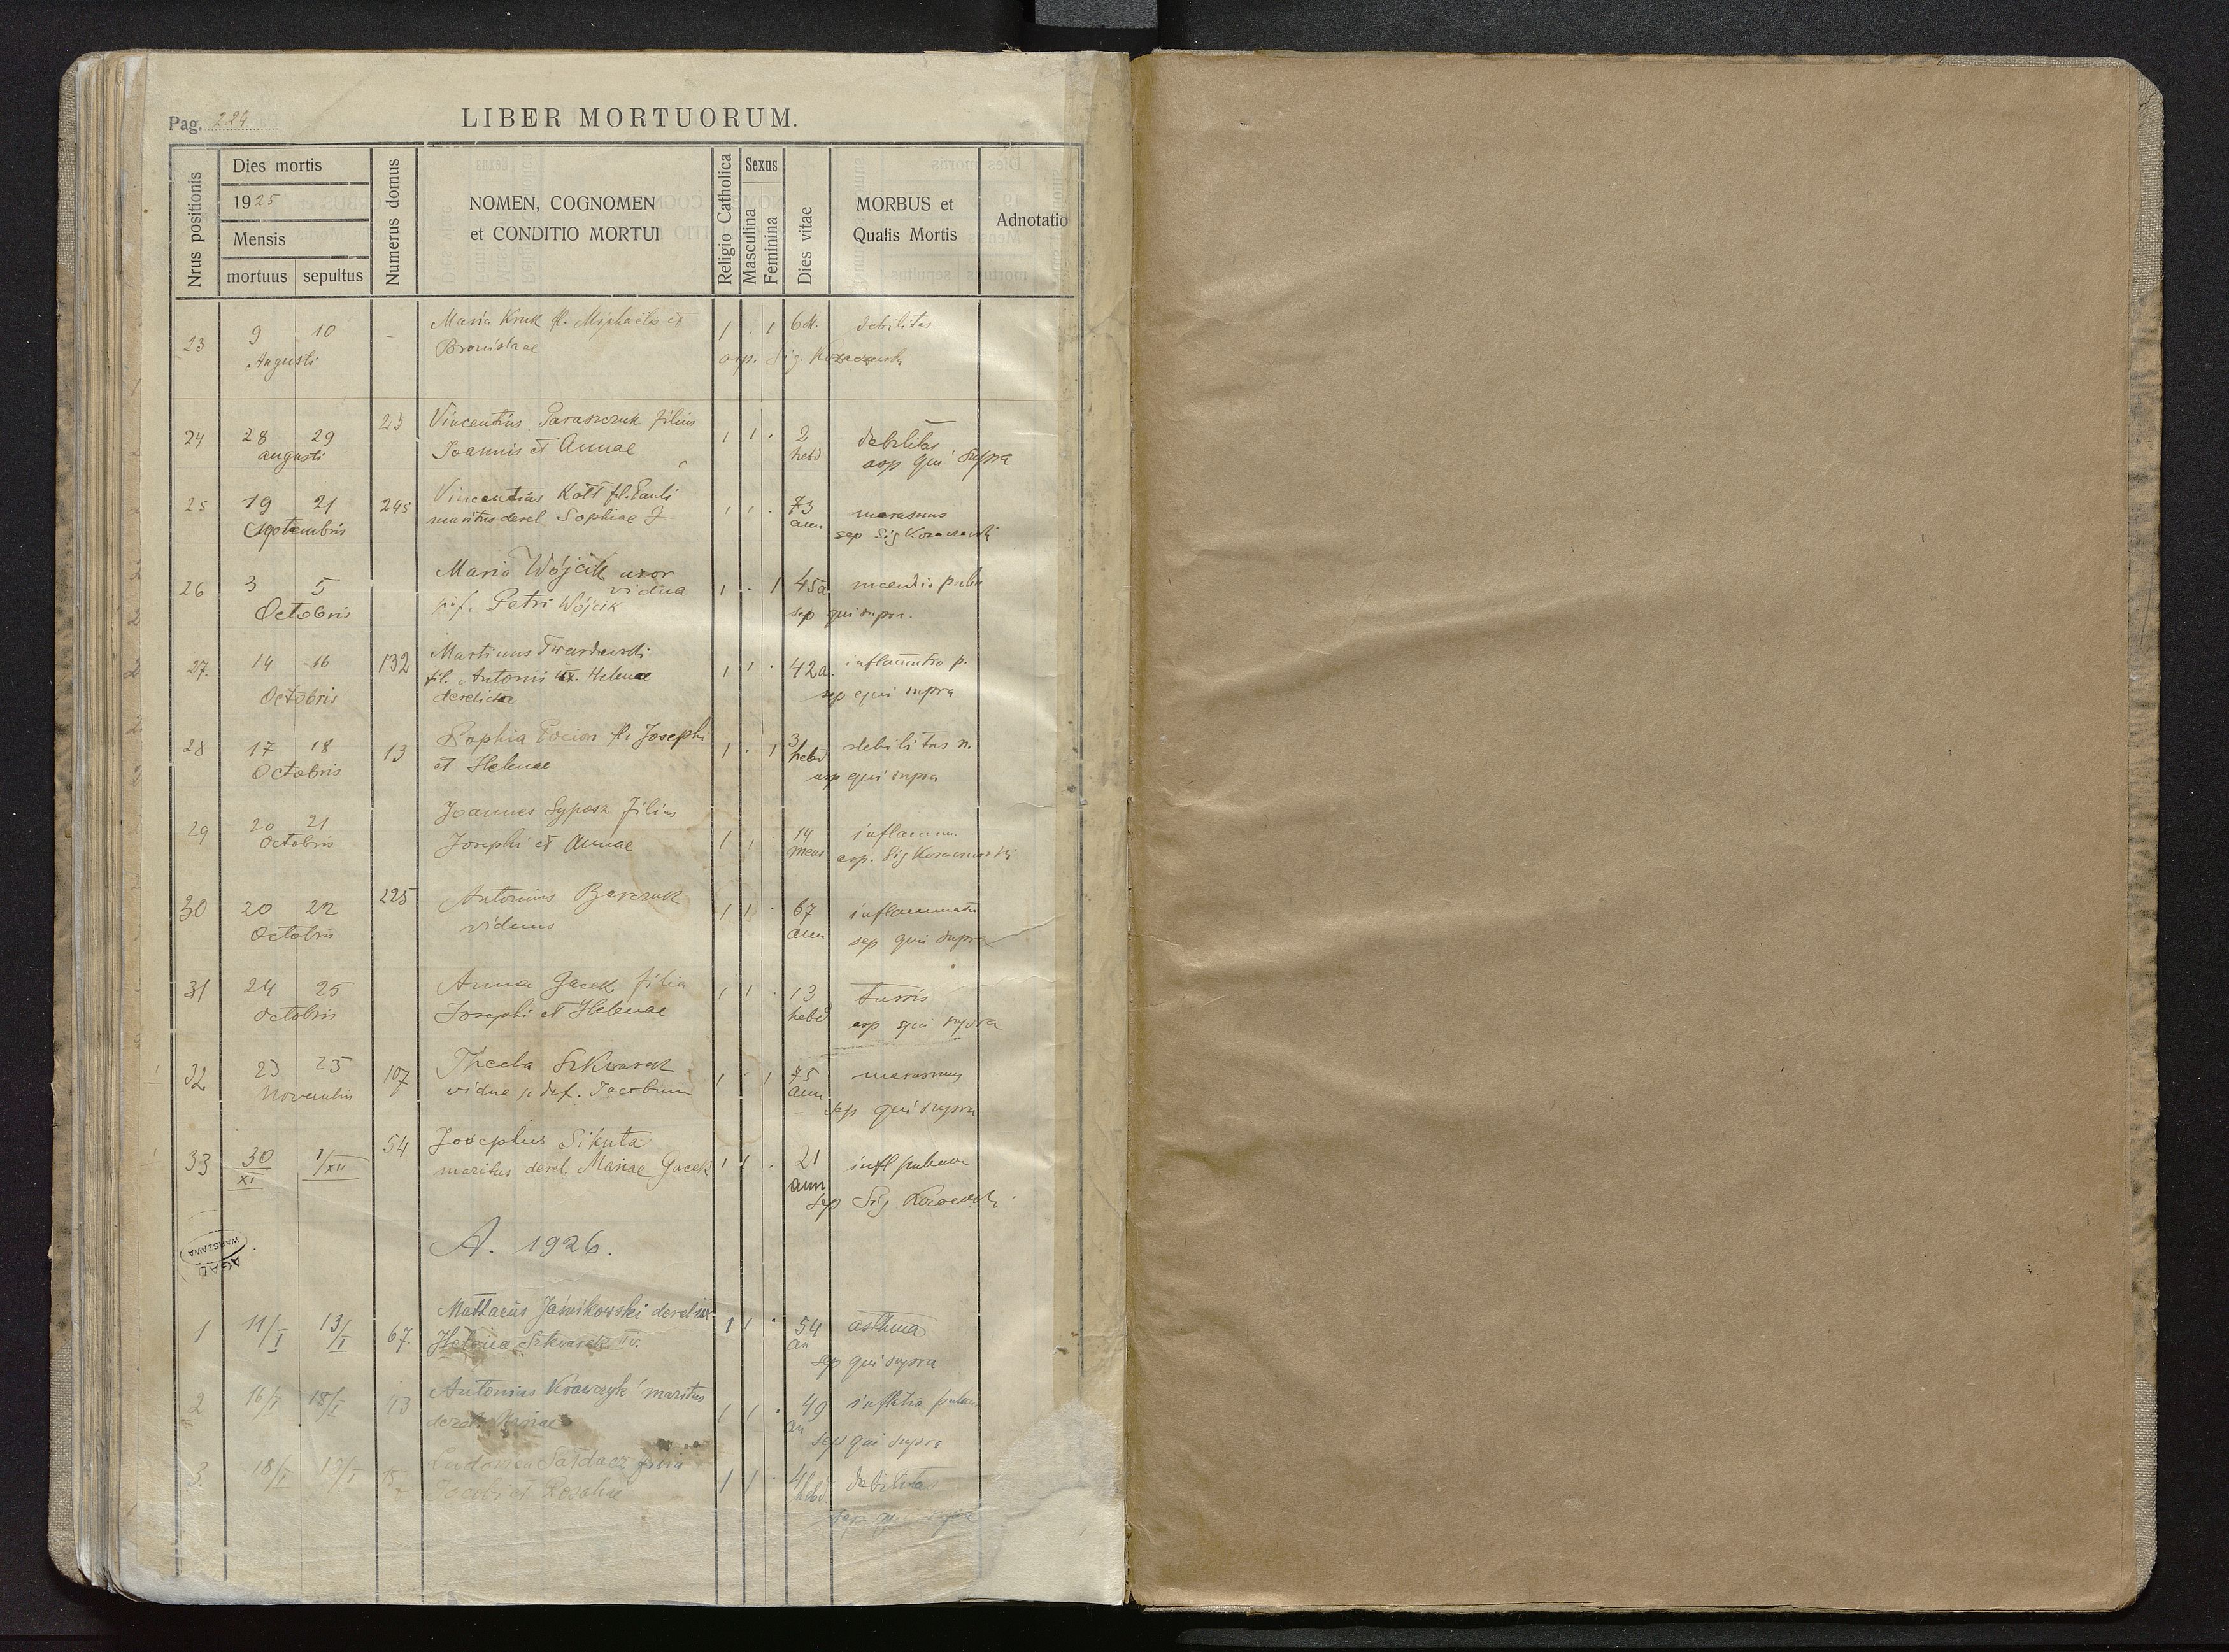 Pag. 224
LIBER MORTUORUM.
Nrus positionis
Dies mortis
1925
Mensis
mortuus sepultus
Numerus domus
NOMEN, COGNOMEN
et CONDITIO MORTUI
Religio Catholica
Sexus
Masculina
Feminina
Dies vitae
MORBUS et
Qualis Mortis
Adnotatio
23 9 10 - Maria Kruk fl. Michaelis et 1 . 1 6 M. debilitas
Augusti Bronislaae asp. Sig. Kozaczewski
24 28 29 23 Vincentius Paraszczuk filius 1 1 . 2 debilitas
augusti Joannis et Annae hebd asp qui supra
25 19 21 245 Vincentius Kott fil. Pauli 1 1 . 73 marasmus
Septembris maritus derel Sophiae ann sep Sig Kozaczewski
26 3 5 Maria Wójcik uxor 1 . 1 45a
vidua
Octobris Petri Wójcik sep qui supra.
27. 14 16 132 Martinus Twardowski 1 1 . 42a. p.
fil. Antonii ux. Helenae
Octobris derelicta sep qui supra
28 17 18 13 Sophia fl. Josephi 1 . 1 3 debilitas n.
Octobris et Helenae hebd asp qui supra
29 20 21 Joannes Syposz filius 1 1 14
Octobris Josephi et Annae mens asp. Sig Kozaczewski
30 20 22 225 Antonius 1 1 . 67
Octobris viduus ann sep qui supra
31 24 25 Anna Gacek filia 1 1 . 13 tussis
Octobris Josephi et Helenae hebd asp qui supra
32 23 25 107 Thecla Szkwarek 1 . 1 75 marasmus
Novembris vidua p. def. Jacobum ann sep qui supra
33 30/XI 1/XII 54 Josephus Sikuta 1 1 . 21 infl pulmon
maritus derel. Mariae Gacek ann sep Sig
AGAD
WARSZAWA
A. 1926.
1 11/I 13/I 67. Mattaeus Jaśnikowski derel ux 1 1 . 54 asthma
Helena Szkwarek an sep qui supra
2 16/I 18/I 13 Antonius Krawczyk maritus 1 1 . 49
derel. an sep qui supra
3. 18/I Sałdacz filia 1 1 . 4 debilitas
Jacobi et Rosaliae hebd. sep qui supra